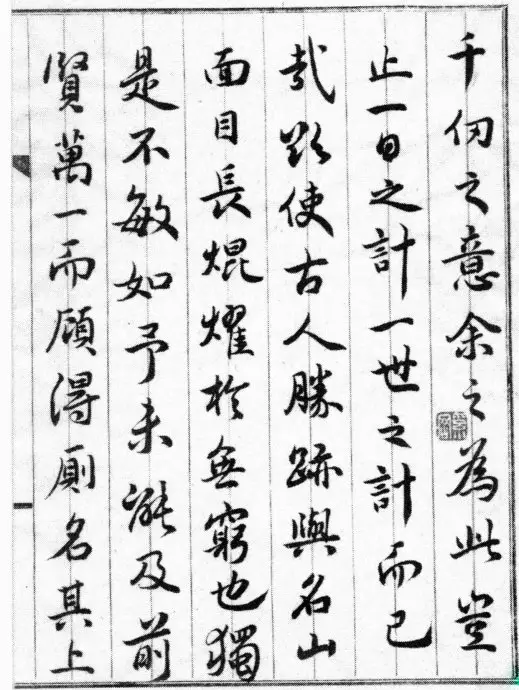 千仞之意余之為此豈
止一日之計一世之計而已
哉欲使古人勝跡與名山
面目長焜燿於無窮也獨
是不敏如予未能及前
賢萬一而顧得厠名其上